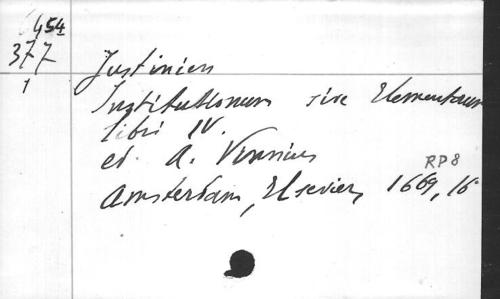 454
377
1
Justinien
Institutionum sive Elementorum
libri IV.
ed. A. Vinnius
RP8
Amsterdam, Elsevier, 1669, 16°